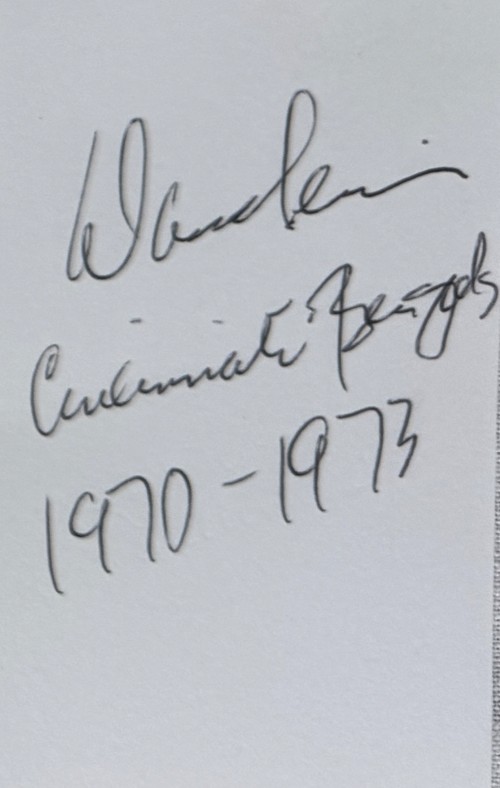 Dave Lewis
Cincinnati Bengals
1970-1973